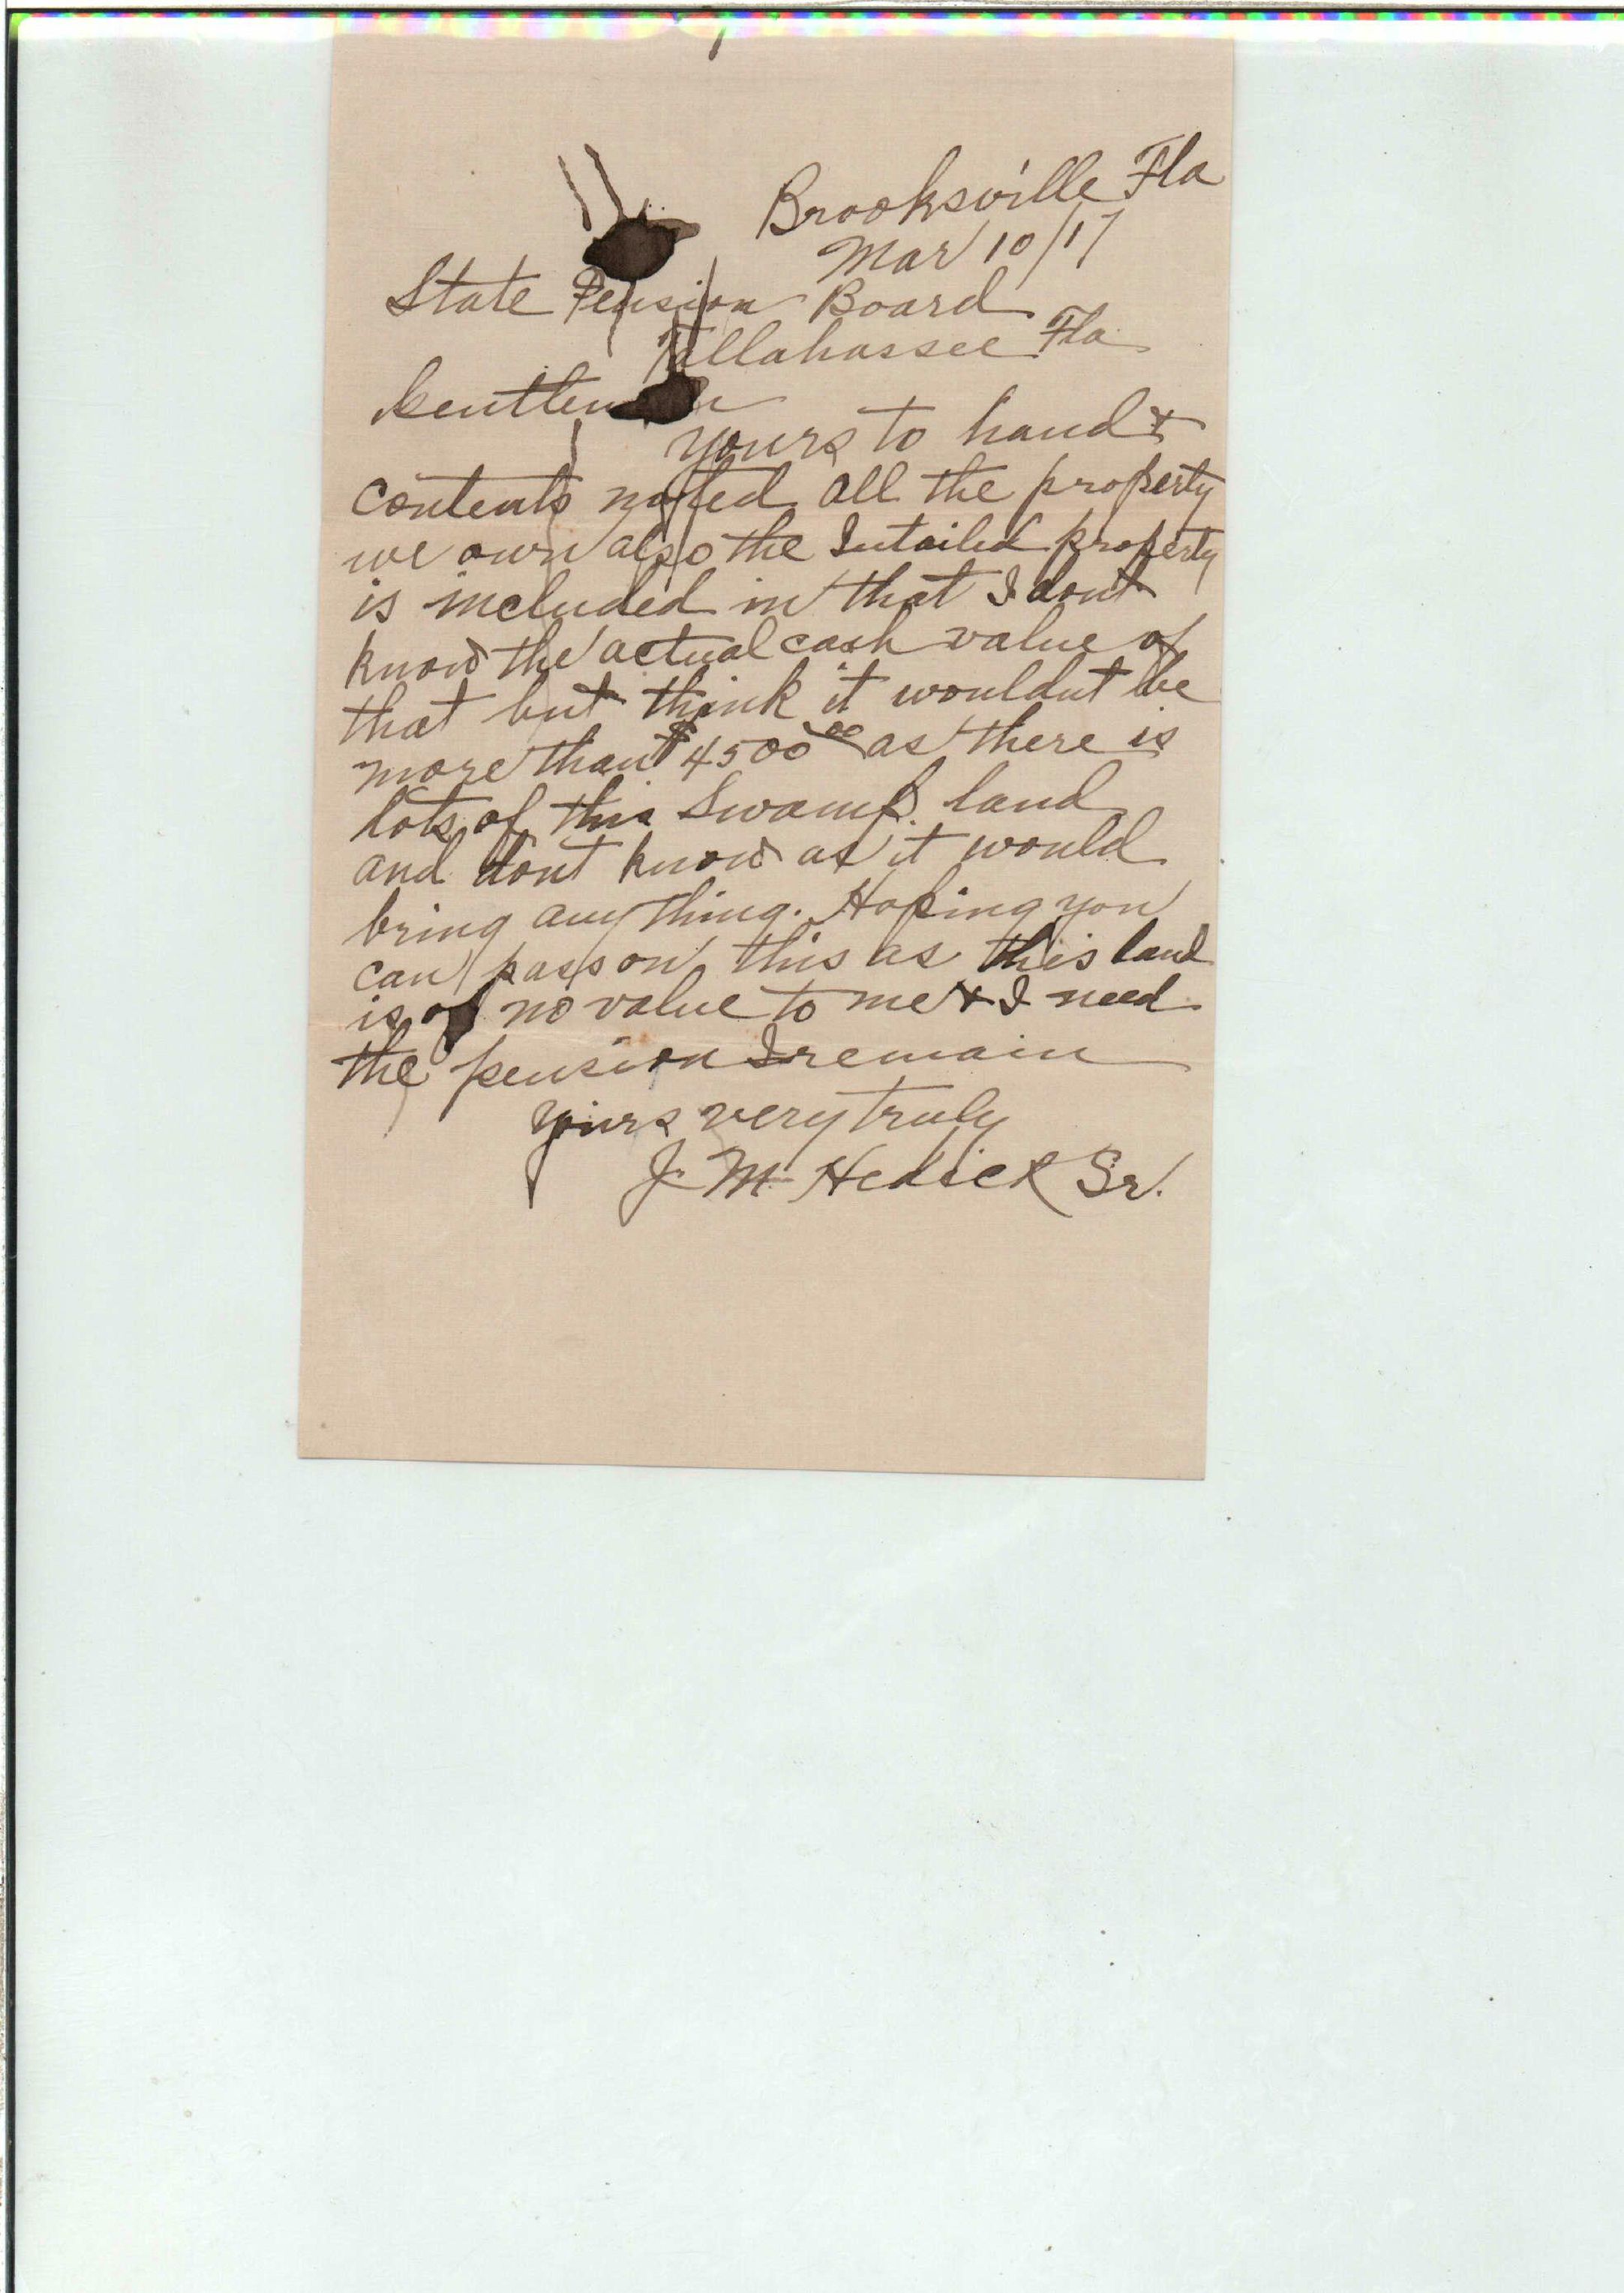 Brooksville Fla
Mar 10/17
State Pension Board
Tallahassee Fla
Gentlemen
yours to hand &
contents noted all the property
we own also the Intailed property
is included in that I dont
know the actual cash value of
that but think it wouldnt be
more than $4500.00 as there is
lots of this Swamp land
and dont know as it would
bring any thing. Hoping you
can pass on this as this land
is of no value to me & I need
the pension I remain
yours very truly
J. M. Hedick Sr.